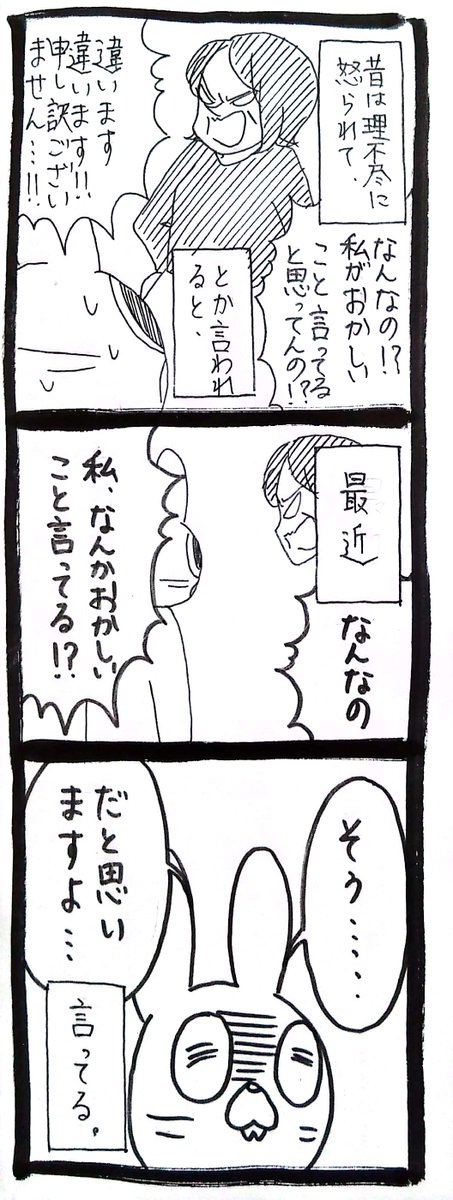 昔は理不尽に
怒られて、
なんなの!?
私がおかしい
こと言ってる
と思ってんの!?
とか言われ
ると、
違います
違います!!
申し訳ござい
ません…!!
最近
なんなの
私、なんかおかしい
こと言ってる!?
そう……
だと思い
ますよ…
言ってる。